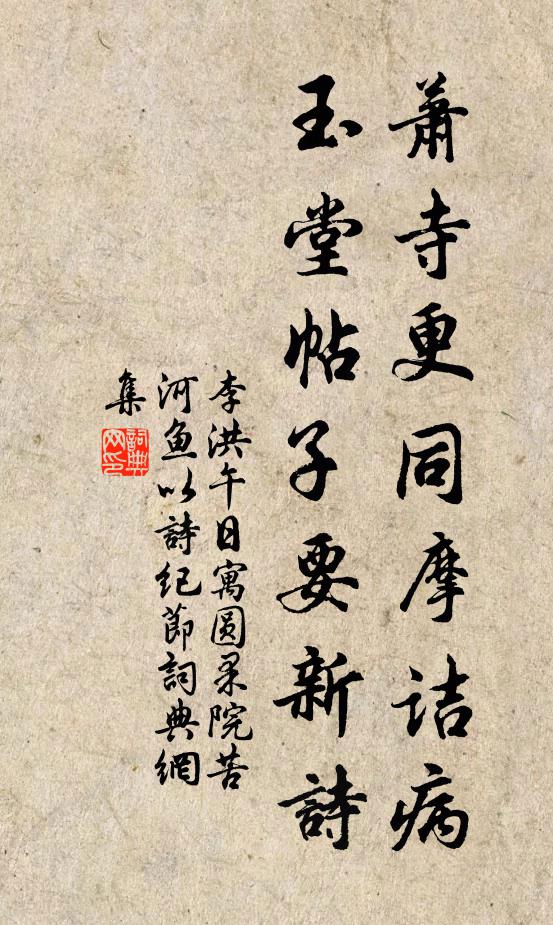 蕭寺更同摩詰病
玉堂帖子要新詩
李洪午日寓圆果院苦
河鱼以詩纪節詞典網
集
詞典網印